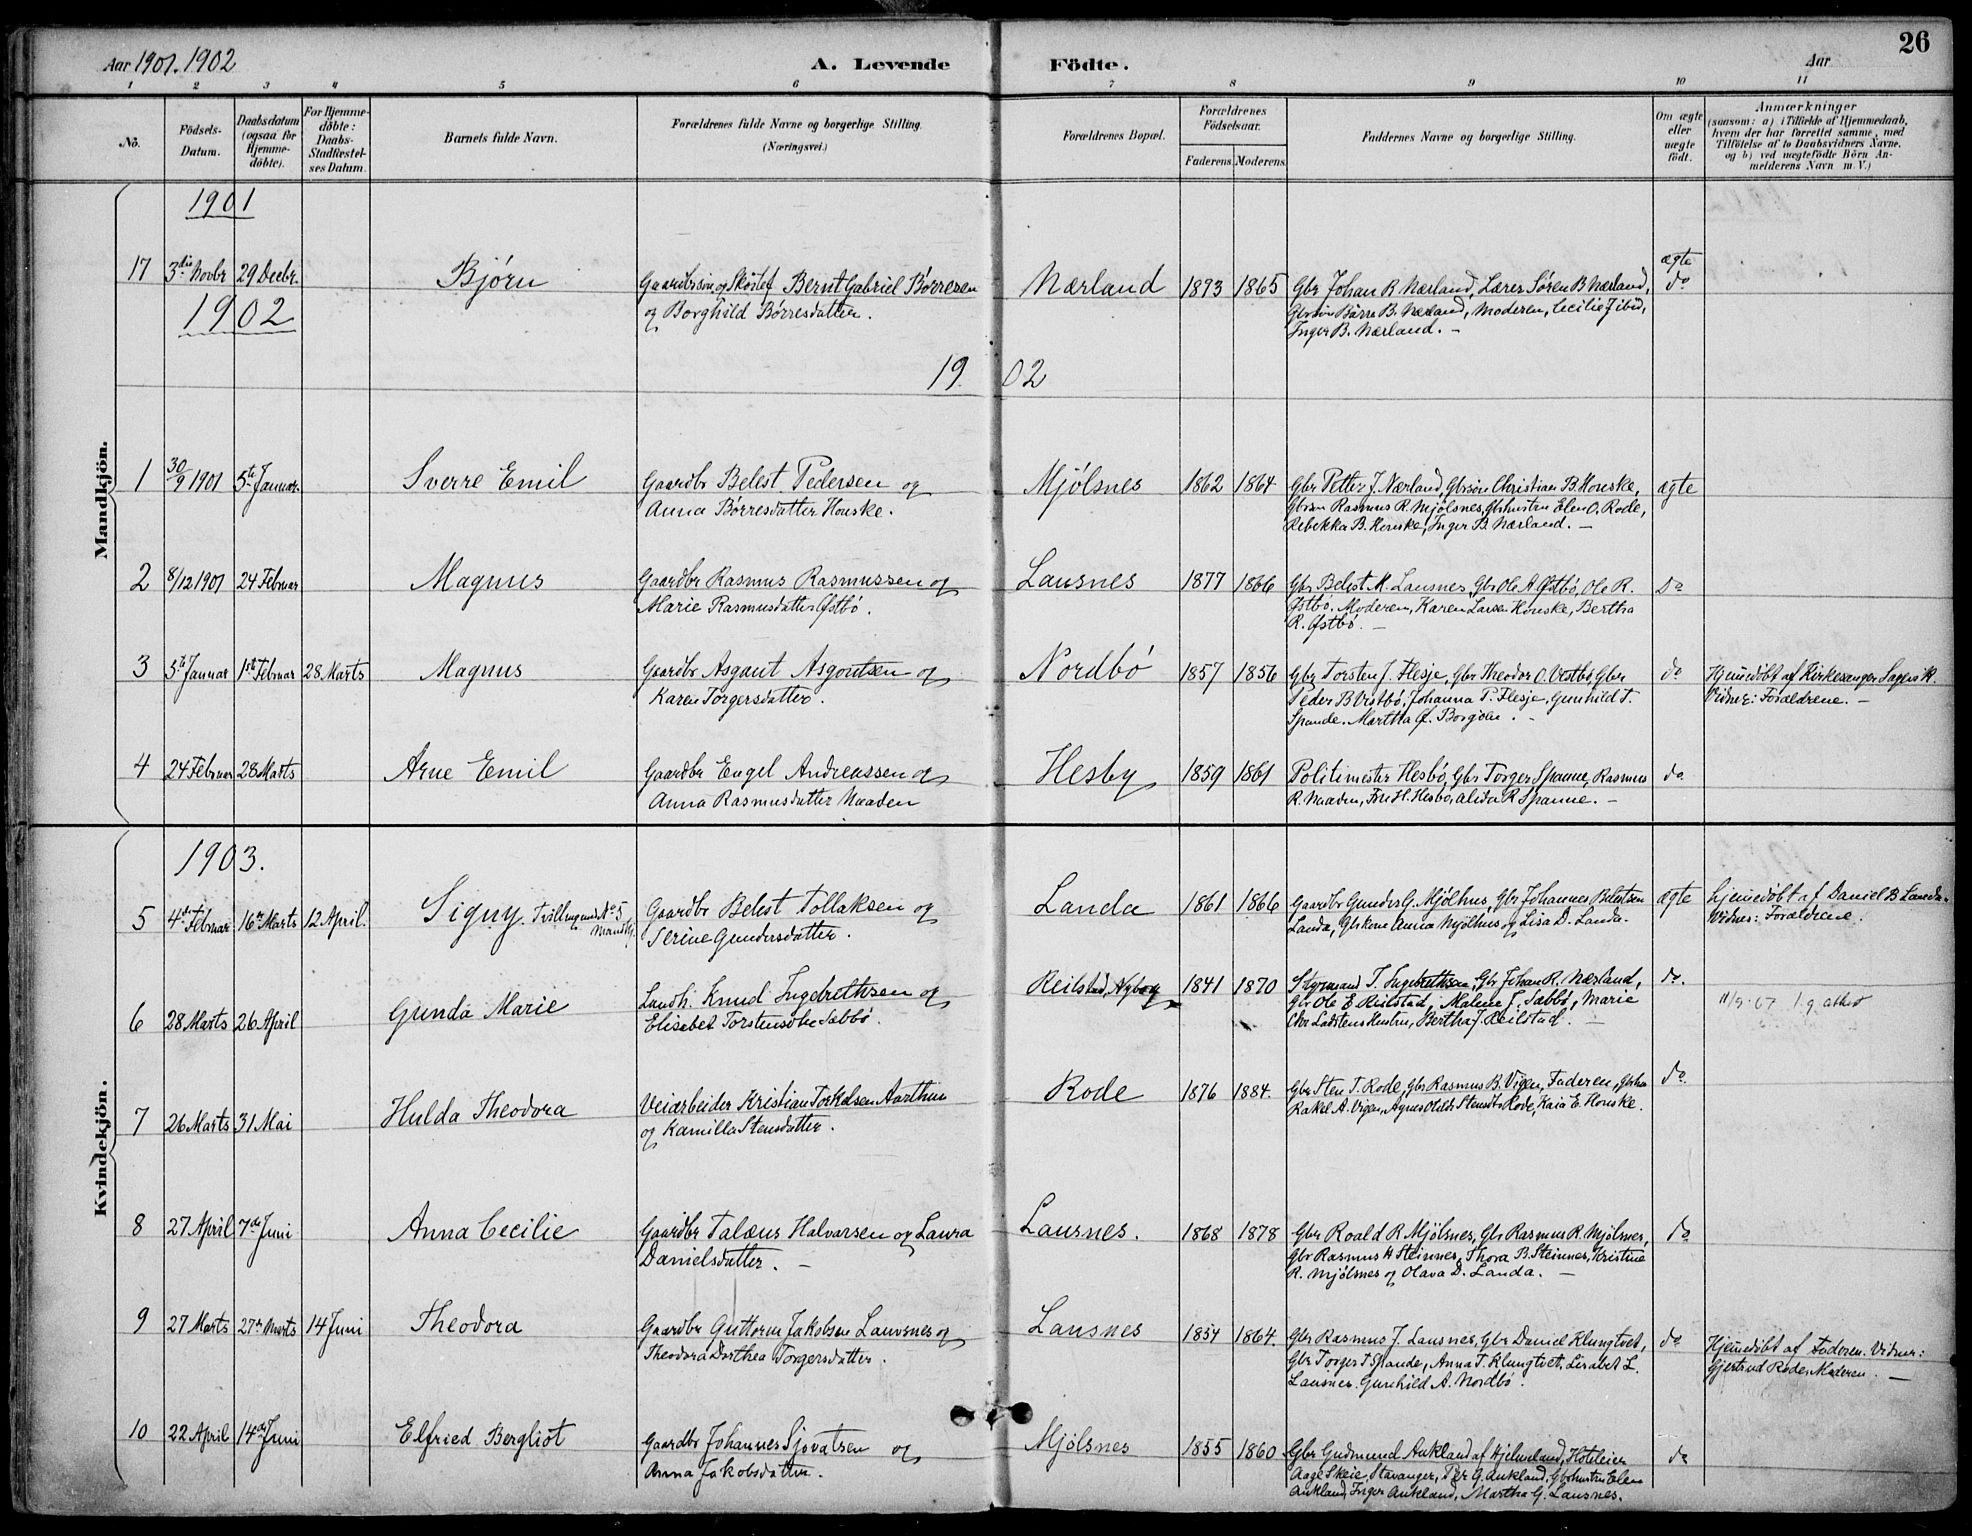 Aar 1901. 1902
A. Levende Födte.
Aar
26
1 2 3 4 5 6 7 8 9 10 11
No.
Födsels-Datum.
Daabsdatum (ogsaa for Hjemmedöbte).
For Hjemmedöbte: Daabs-Stadfæstelses Datum.
Barnets fulde Navn.
Forældrenes fulde Navne og borgerlige Stilling. (Næringsvei.)
Forældrenes Bopæl.
Forældrenes Födselsaar.
Faderens. Moderens.
Faddernes Navne og borgerlige Stilling.
Om ægte eller uægte födt.
Anmærkninger
(saasom: a) i Tilfælde af Hjemmedaab, hvem der har forrettet samme, med Tilföielse af to Daabsvidners Navne, og b) ved uægtefödte Börn Anmelderens Navn m. V.)
Mandkjön.
1901
17 3die Novbr 29 Decbr. Bjørn
Gaardbrsøn og Skostef Bernt Gabriel Børresen
og Borghild Børresdatter.
Nærland 1873 1865
Gbr Johan R Nærland, Lærer Søren B Nærland,
Gbrsøn Børre B. Nærland, Moderen, Cecilie J ibid,
Inger B. Nærland. –
ægte
do
1902
1902
1 30/9 1901 5te Januar. Sverre Emil
Gaardbr Belest Pedersen og
Anna Børresdatter Houske.
Mjølsnes 1862 1864
Gbr Petter J. Nærland, Gbrsøn Christian B. Houske,
Gbrsøn Rasmus R. Mjølsnes, Gbrhustru Elen O. Rode,
Rebekka B. Houske, Inger B. Nærland. –
ægte
2 8/12 1901 24 Februar Magnus
Gaardbr Rasmus Rasmussen og
Marie Rasmusdatter Østbø.
Lausnes 1877 1866
Gbr Belest M. Lausnes, Gbr Ole A Østbø, Ole R.
Østbø. Moderen, Karen Larsen Houske, Bertha
R. Østbø. –
Do
3 5te Januar 1ste Februar 28 Marts Magnus
Gaardbr Asgaut Asgoutsen og
Karen Torgersdatter.
Nordbø 1857 1856
Gbr Torsten J. Flesje, Gbr Theodor O. Vestbø, Gbr
Peder B Vestbø, Johanna P. Flesje, Gunhild T.
Spande. Martha Ø. Borgøen. –
do
Hjemedøbt af Kirkesanger
Vidner: Forældrene. –
4 24 Februar 28 Marts Arne Emil
Gaardbr Engel Andreassen og
Anna Rasmusdatter Naaden
Hesby 1859 1861
Politimester Hesbø, Gbr Torger Spanne, Rasmus
R. Naaden, Fru H. Hesbø, Alida R Spanne. –
do
Kvindekjön.
1903.
5 4de Februar 16de Marts 12 April. Signy. Tvilling med No 5
Mandkj.
Gaardbr Belest Tollaksen og
Serine Gundersdatter.
Landa 1861 1866
Gaardbr Gunder G. Mjølhus, Gbr Johannes Belestsen
Landa, Gbrkone Anna Mjølhus og Lisa D. Landa.
ægte
hjemedøbt af Daniel B Landa.
Vidner: Forældrene.
6 28 Marts 26 April Gunda Marie
Landh. Knud Ingebrethsen og
Elisabet Torstensdtr Sæbbø.
Reilstad, Nyborg 1841 1870
Styrmand T. Ingebrethsen, Gbr Johan R. Nærland,
Gbr Ole E Reilstad, Malene J. Sæbbø, Marie
Chr Ladstens Hustru, Bertha J. Reilstad. –
do.
11/9 67 l.g. attest
7 26 Marts 31 Mai Hulda Theodora
Veiarbeider Kristian Torkelsen Aarthun
og Kamilla Stensdatter.
Rode 1876 1884.
Gbr Sten T. Rode, Gbr Rasmus B. Vigen, Faderen, Gbrkn
Rakel A. Vigen, Agnes Stensdtr Rode, Kaia E. Houske.
do.
8 27 April 7de Juni Anna Cecilie
Gaardbr Talæus Halvarsen og Laura
Danielsdatter. –
Lausnes. 1868 1878
Gbr Roald R Mjølsnes, Gbr Rasmus R. Mjølsnes,
Gbr Rasmus H Steinnes, Thora B. Steinnes, Kristine
R. Mjølsnes og Olava D. Landa. –
do
9 27 Marts 27de Marts 14 Juni Theodora
Gaardbr Guttorm Jakobsen Lauvsnes og
Theodora Dorthea Torgersdatter.
Lausnes 1854 1864.
Gbr Rasmus J. Lausnes, Gbr Daniel Klungtvet,
Gbr Torger T. Spande, Anna T. Klungtvet, Lisabet L.
Lausnes. Gunhild A. Nordbø.
do
Hjemedøbt af Faderen. Vidner:
Gjertrud Rode, Moderen. –
10 22 April 14de Juni Elfried Bergliot
Gaardbr Johannes Sjovatsen og
Anna Jakobsdatter.
Mjølsnes 1855 1860
Gbr Gudmund Aukland af Hjelmeland, Hoteleier
Aage Skeie, Stavanger, Per G. Aukland, Gbrhustru Elen
Aukland, Inger Aukland, Martha G. Lausnes.
do